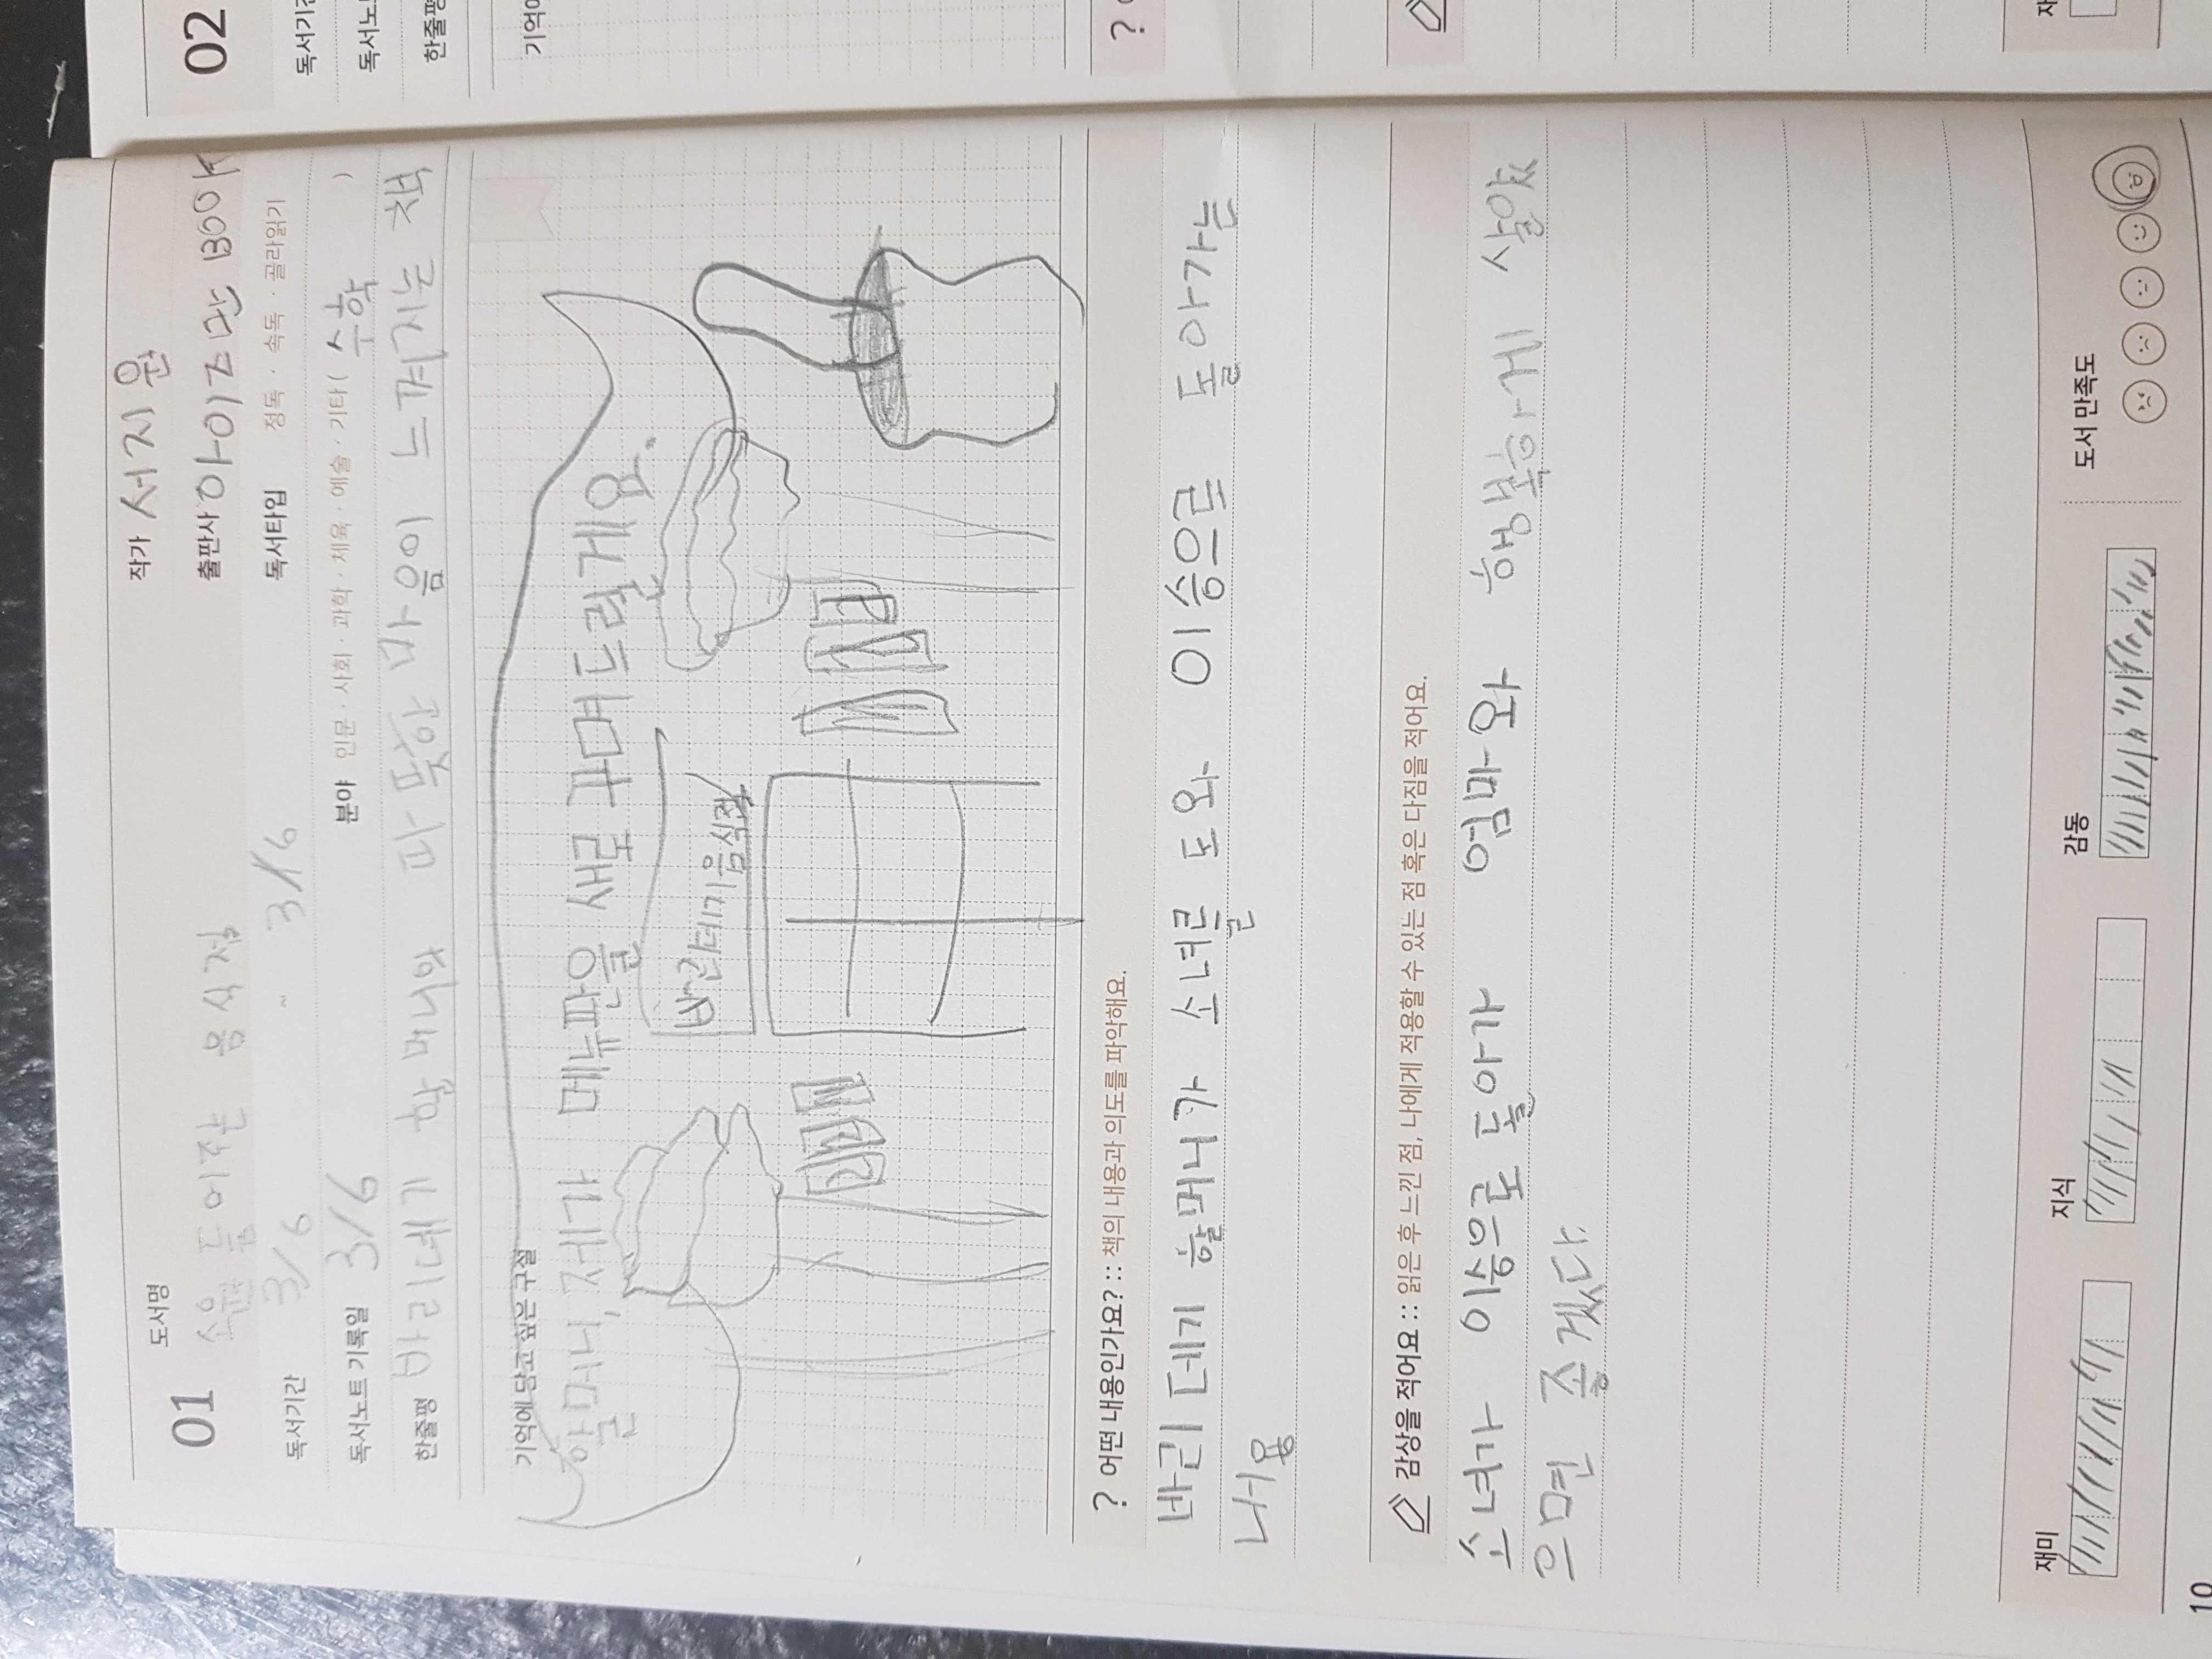 01 도서명 작가 서지원
소원 들어주는 음식점
출판사 아이즈만 BOOK
02
독서기간 3/6 ~ 3/6 독서타입 정독 · 속독 · 골라읽기
독서노트 기록일 3/6 분야 인문 · 사회 · 과학 · 체육 · 예술 · 기타 ( 수학 )
한줄평 바리데기 할머니와 따뜻한 마음이 느껴지는 책
기억에 담고 싶은 구절
할머니, 제가 메뉴판을 새로 꾸며드릴게요.
바리데기음식점
? 어떤 내용인가요? :: 책의 내용과 의도를 파악해요.
바리데기 할머니가 소녀를 도와 이승으로 돌아가는
내용
감상을 적어요 :: 읽은 후 느낀 점, 나에게 적용할 수 있는 점 혹은 다짐을 적어요.
소녀가 이승으로 돌아가 엄마와 행복하게 살았
으면 좋겠다.
재미 지식 감동 도서 만족도
10